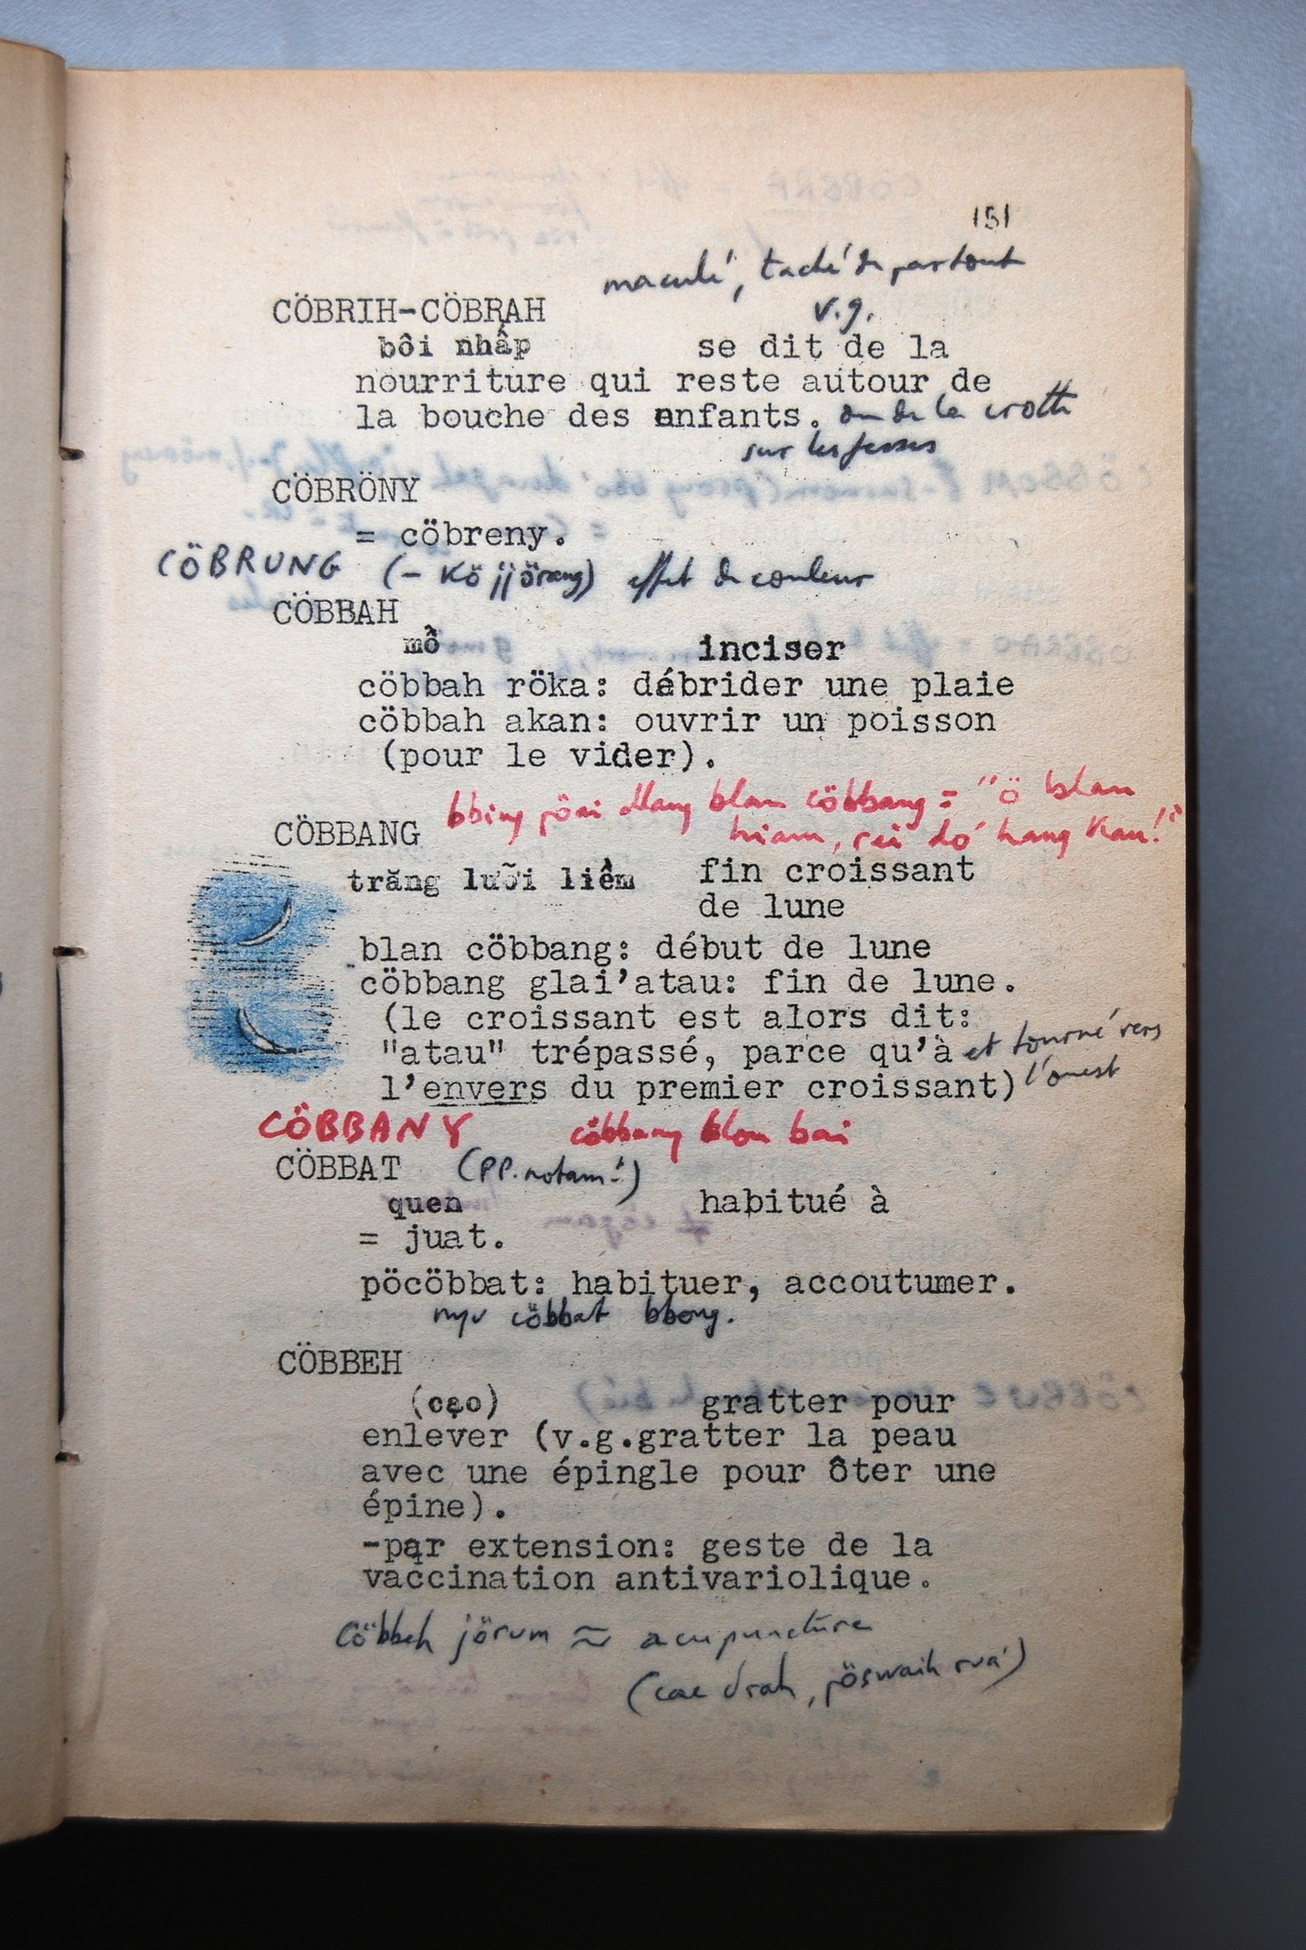 151
maculé, taché de partout
CÖBRIH-CÖBRAH v.g.
bôi nhấp se dit de la
nourriture qui reste autour de
la bouche des enfants. ou de la crotte
sur les fesses
CÖBRÖNY
= cöbreny.
CÖBRUNG effet de couleur
CÖBBAH
mổ inciser
cöbbah röka: débrider une plaie
cöbbah akan: ouvrir un poisson
(pour le vider).
blan cöbbang = "ö blan
CÖBBANG
trăng lưỡi liềm fin croissant
de lune
blan cöbbang: début de lune
cöbbang glai'atau: fin de lune.
(le croissant est alors dit:
"atau" trépassé, parce qu'à et tourné vers
l'envers du premier croissant) l'ouest
CÖBBANY
CÖBBAT (PP. notam!)
quen habitué à
= juat.
pöcöbbat: habituer, accoutumer.
cöbbat bbong.
CÖBBEH
(cạo) gratter pour
enlever (v.g.gratter la peau
avec une épingle pour ôter une
épine).
-par extension: geste de la
vaccination antivariolique.
Cöbbeh jörum ≈ acupuncture
(cac drah, pöswaih rua')